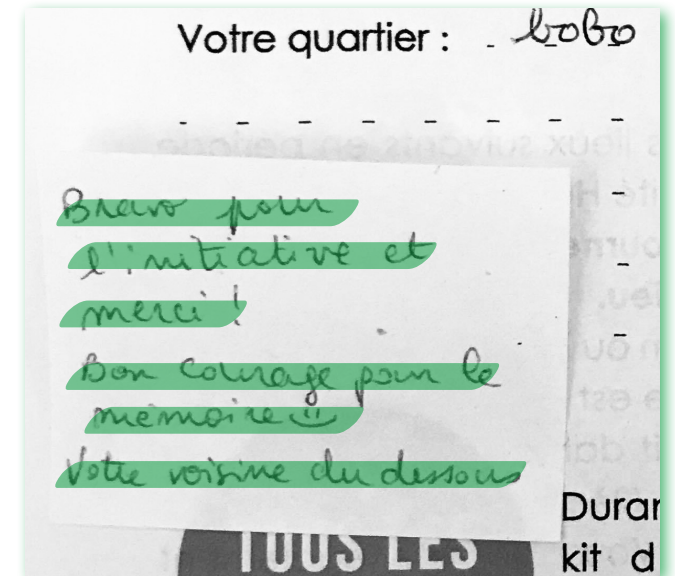 Votre quartier : bobo
Bravo pour
l'initiative et
merci !
Bon courage pour le
mémoire
Votre voisine du dessous
TOUS LES
Durar
kit d